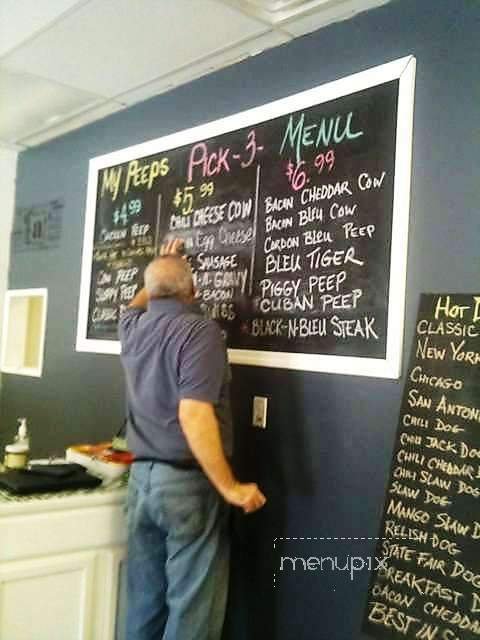 My Peeps Pick-3- Menu
$4.99
Chicken Peep
Cow Peep
Sloppy Peep
Classic
$5.99
Chili Cheese Cow
Egg Cheese
Sausage
-N-Gravy
Bacon
$6.99
Bacon Cheddar Cow
Bacon Bleu Cow
Cordon Bleu Peep
Bleu Tiger
Piggy Peep
Cuban Peep
Black-N-Bleu Steak
Hot D
Classic
New York
Chicago
San Antoni
Chili Dog
Chili Jack Do
Chili Cheddar D
Chili Slaw Dog
Slaw Dog
Mango Slaw D
Relish Dog
State Fair Dog
Breakfast D
Bacon Chedda
Best in
menupix